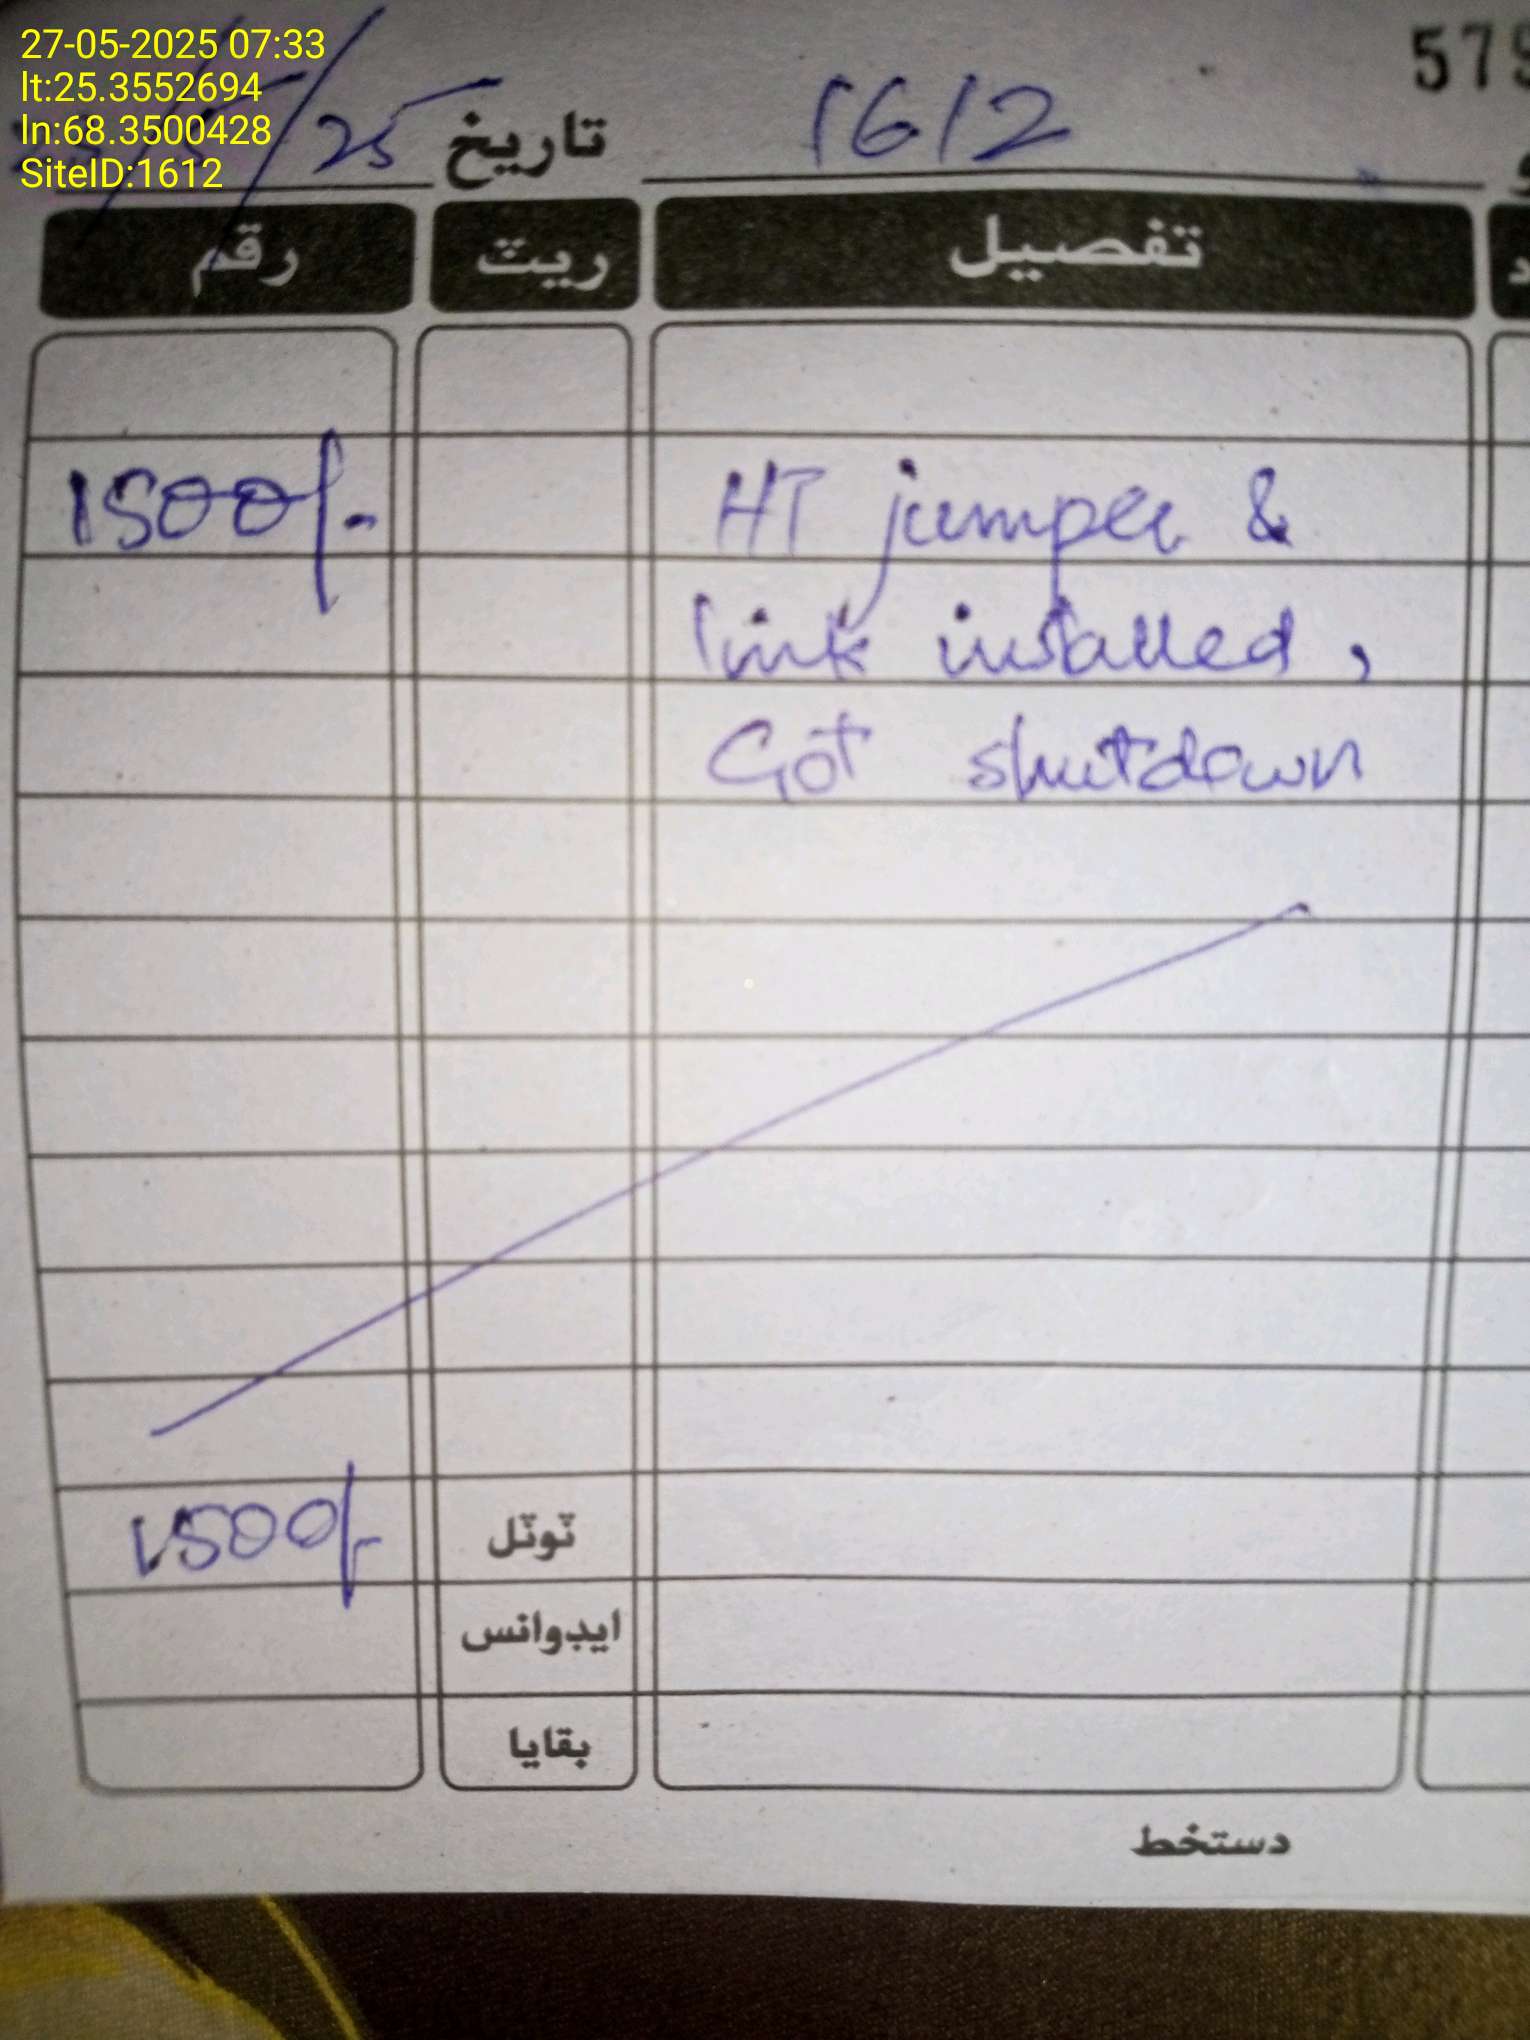 27-05-2025 07:33
lt:25.3552694
ln:68.3500428
SiteID:1612
579
1612
تاریخ /25
تفصیل ریٹ رقم
HT jumper & 1500/-
link installed,
Got shutdown
ٹوٹل 1500/-
ایڈوانس
بقایا
دستخط